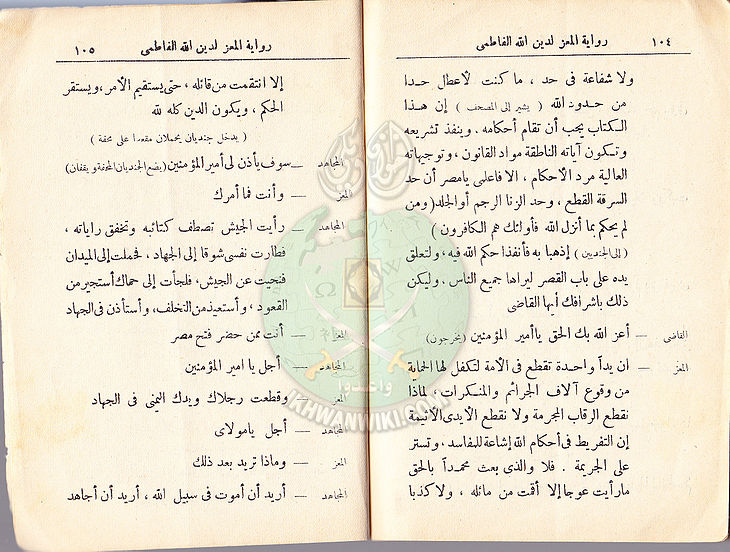 ١٠٤ رواية المعز لدين الله الفاطمى
ولا شفاعة فى حد ، ما كنت لأعطل حدا
من حدود الله ( يشير إلى المصحف ) إن هذا
الكتاب يجب أن تقام أحكامه. وينفذ تشريعه
وتكون آياته الناطقة مواد القانون ، وتوجيهاته
العالية مرد الأحكام ، الا فاعلمى يامصر أن حد
السرقة القطع ، وحد الزنا الرجم أو الجلد ( ومن
لم يحكم بما أنزل الله فأولئك هم الكافرون )
( إلى الجنديين ) إذهبا به فأنفذا حكم الله فيه ، ولتعلق
يده على باب القصر ليراها جميع الناس . وليكن
ذلك باشرافك أيها القاضى
القاضى — أعز الله بك الحق ياأمير المؤمنين (يخرجون)
المعز — ان يداً واحدة تقطع فى الأمة لتكفل لها الحماية
من وقوع آلاف الجرائم والمنكرات ، لماذا
نقطع الرقاب المجرمة ولا نقطع الأيدى الأثيمة
إن التفريط فى أحكام الله إشاعة للمفاسد ، وتستر
على الجريمة . فلا والذى بعث محمداً بالحق
مارأيت عوجا إلا أقمت من مائله ، ولا كذبا
رواية المعز لدين الله الفاطمى ١٠٥
إلا انتقمت من قائله ، حتى يستقيم الأمر ، ويستقر
الحكم ، ويكون الدين كله لله
( يدخل جنديان يحملان مقعدا على محفة )
المجاهد — سوف يأذن لى أمير المؤمنين (يضع الجنديان المحفة ويقفان)
المعز — وأنت فما أمرك
المجاهد — رأيت الجيش تصطف كتائبه وتخفق راياته ،
فطارت نفسى شوقا إلى الجهاد ، فحملت إلى الميدان
فنحيت عن الجيش، فلجأت إلى حماك أستجير من
القعود ، وأستعيذ من التخلف، وأستأذن فى الجهاد
المعز — أنت ممن حضر فتح مصر
المجاهد — أجل يا امير المؤمنين
المعز — وقطعت رجلاك ويدك اليمنى فى الجهاد
المجاهد — أجل يامولاى
المعز — وماذا تريد بعد ذلك
المجاهد — أريد أن أموت فى سبيل الله ، أريد أن أجاهد
وأعدوا
IKHWANWIKI.COM